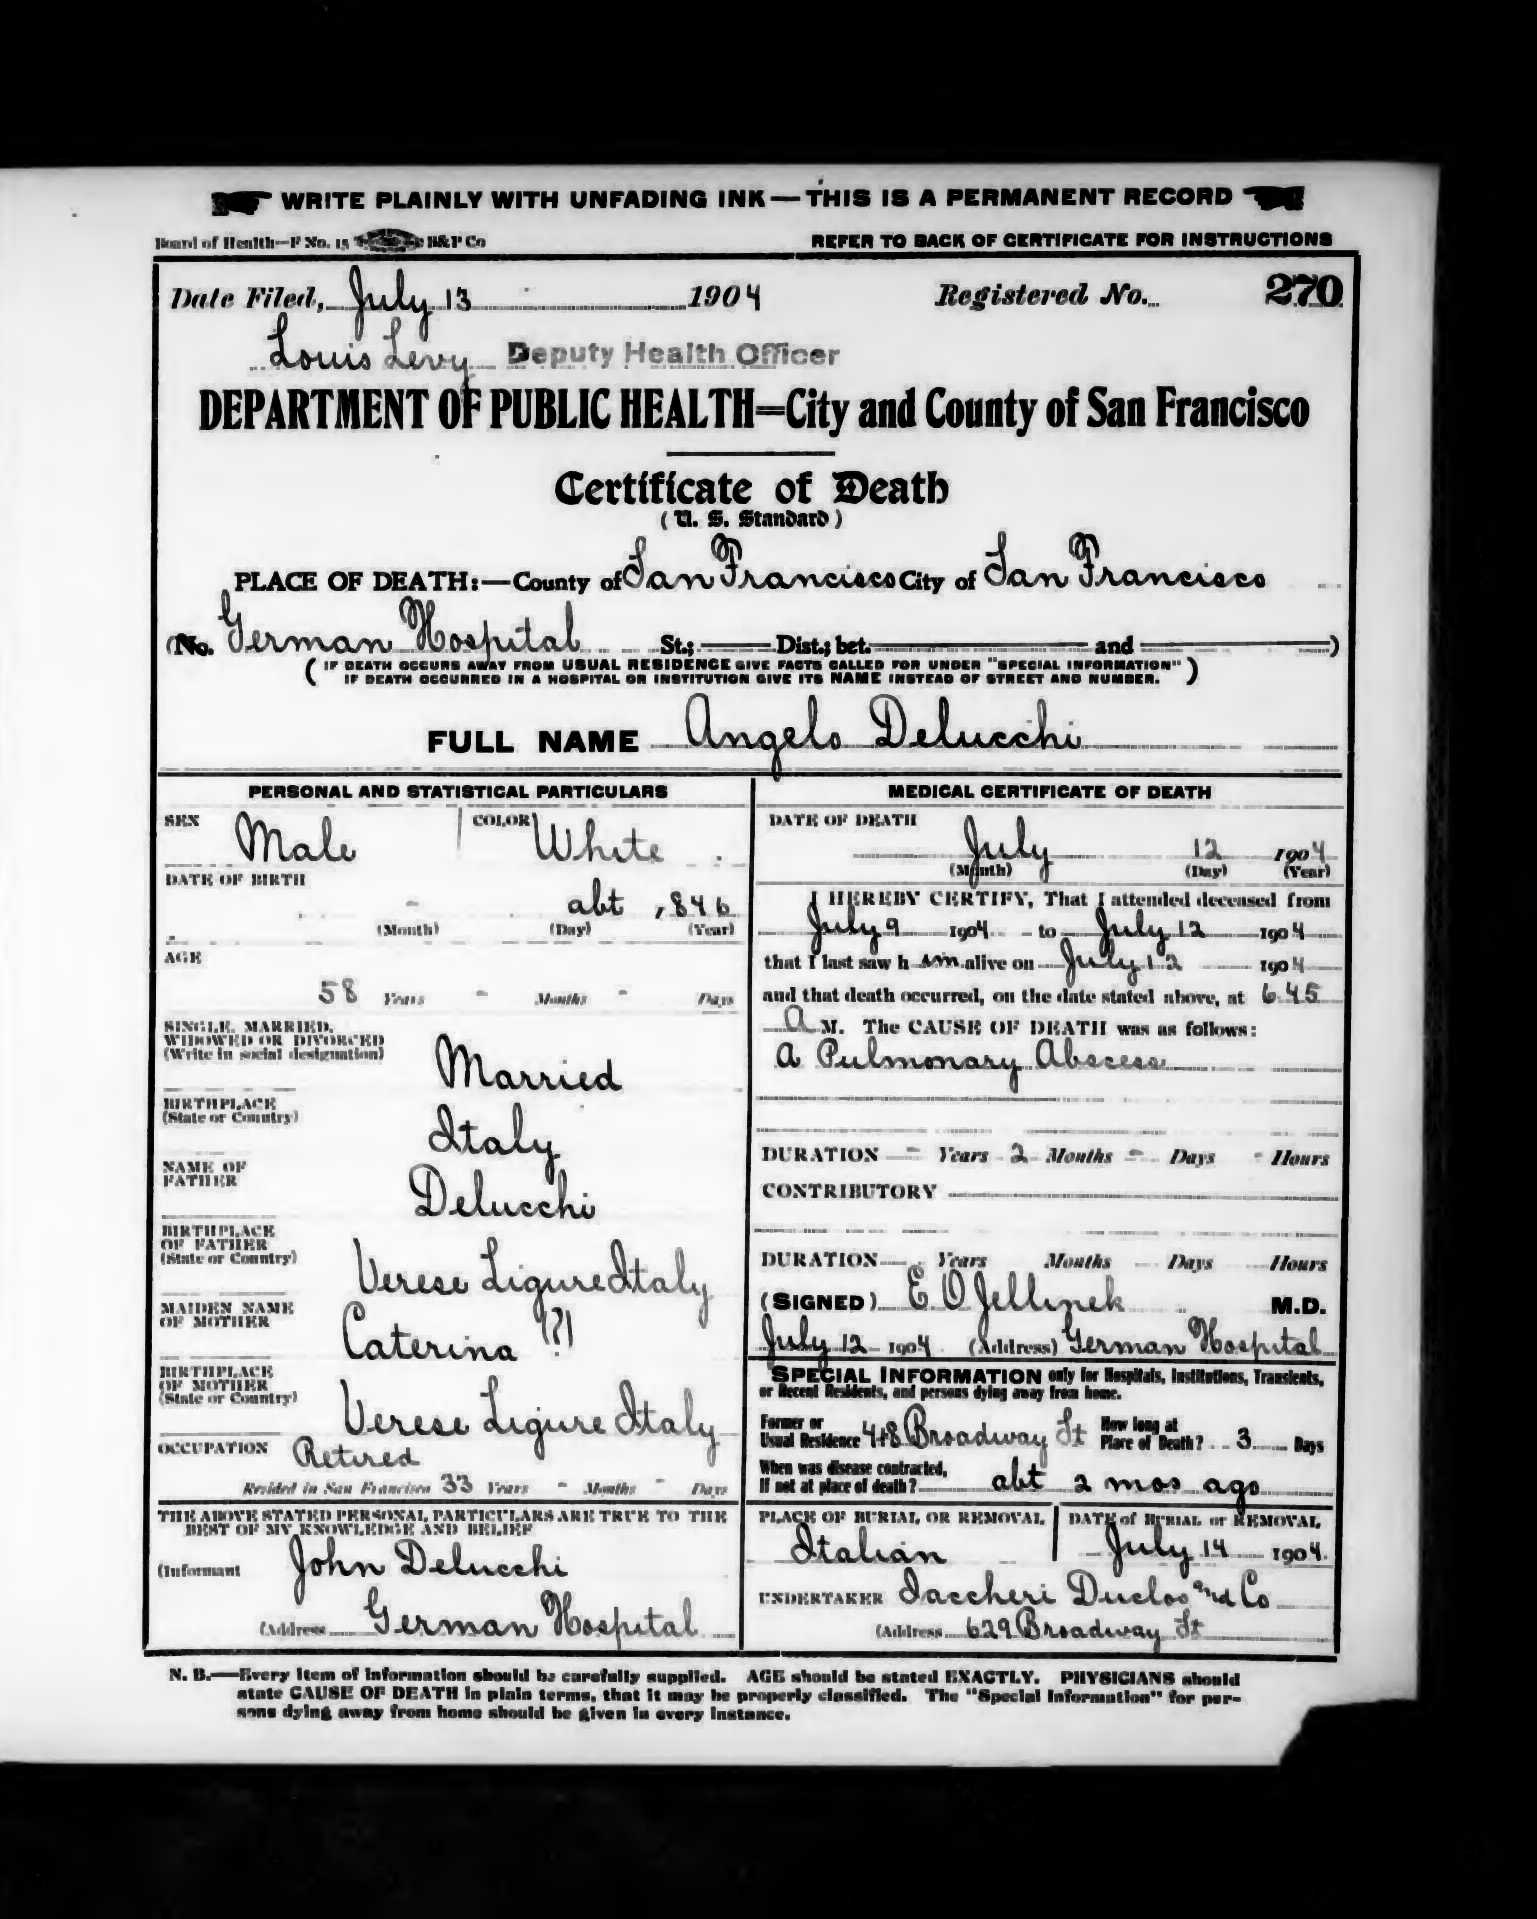 WRITE PLAINLY WITH UNFADING INK — THIS IS A PERMANENT RECORD
Board of Health—F No. 15 B&P Co
REFER TO BACK OF CERTIFICATE FOR INSTRUCTIONS
Date Filed, July 13 1904 Registered No. 270
Louis Levy Deputy Health Officer
DEPARTMENT OF PUBLIC HEALTH=City and County of San Francisco
Certificate of Death
(U. S. Standard)
PLACE OF DEATH:—County of San Francisco City of San Francisco
(No. German Hospital St.; Dist.; bet. and )
( IF DEATH OCCURS AWAY FROM USUAL RESIDENCE GIVE FACTS CALLED FOR UNDER "SPECIAL INFORMATION" )
IF DEATH OCCURRED IN A HOSPITAL OR INSTITUTION GIVE ITS NAME INSTEAD OF STREET AND NUMBER.
FULL NAME Angelo Delucchi
PERSONAL AND STATISTICAL PARTICULARS
SEX Male COLOR White
DATE OF BIRTH
abt 1846
(Month) (Day) (Year)
AGE
58 Years - Months - Days
SINGLE, MARRIED,
WIDOWED OR DIVORCED
(Write in social designation)
Married
BIRTHPLACE
(State or Country)
Italy
NAME OF
FATHER
Delucchi
BIRTHPLACE
OF FATHER
(State or Country)
Verese Ligure Italy
MAIDEN NAME
OF MOTHER
Caterina (?)
BIRTHPLACE
OF MOTHER
(State or Country)
Verese Ligure Italy
OCCUPATION Retired
Resided in San Francisco 33 Years - Months - Days
THE ABOVE STATED PERSONAL PARTICULARS ARE TRUE TO THE
BEST OF MY KNOWLEDGE AND BELIEF
(Informant John Delucchi
(Address German Hospital
MEDICAL CERTIFICATE OF DEATH
DATE OF DEATH
July 12 1904
(Month) (Day) (Year)
I HEREBY CERTIFY, That I attended deceased from
July 9 1904 to July 12 1904
that I last saw h im alive on July 12 1904
and that death occurred, on the date stated above, at 6.45
A M. The CAUSE OF DEATH was as follows:
A Pulmonary Abscess
DURATION - Years 2 Months - Days - Hours
CONTRIBUTORY
DURATION Years Months Days Hours
(SIGNED) E O Jellinek M.D.
July 12 1904 (Address) German Hospital
SPECIAL INFORMATION only for Hospitals, Institutions, Transients,
or Recent Residents, and persons dying away from home.
Former or
Usual Residence 448 Broadway St
How long at
Place of Death? 3 Days
When was disease contracted,
If not at place of death? abt 2 mos ago
PLACE OF BURIAL OR REMOVAL
Italian
DATE of BURIAL or REMOVAL
July 14 1904
UNDERTAKER Iaccheri Duclos and Co
(Address 629 Broadway St
N. B.—Every item of information should be carefully supplied. AGE should be stated EXACTLY. PHYSICIANS should
state CAUSE OF DEATH in plain terms, that it may be properly classified. The "Special Information" for per-
sons dying away from home should be given in every instance.